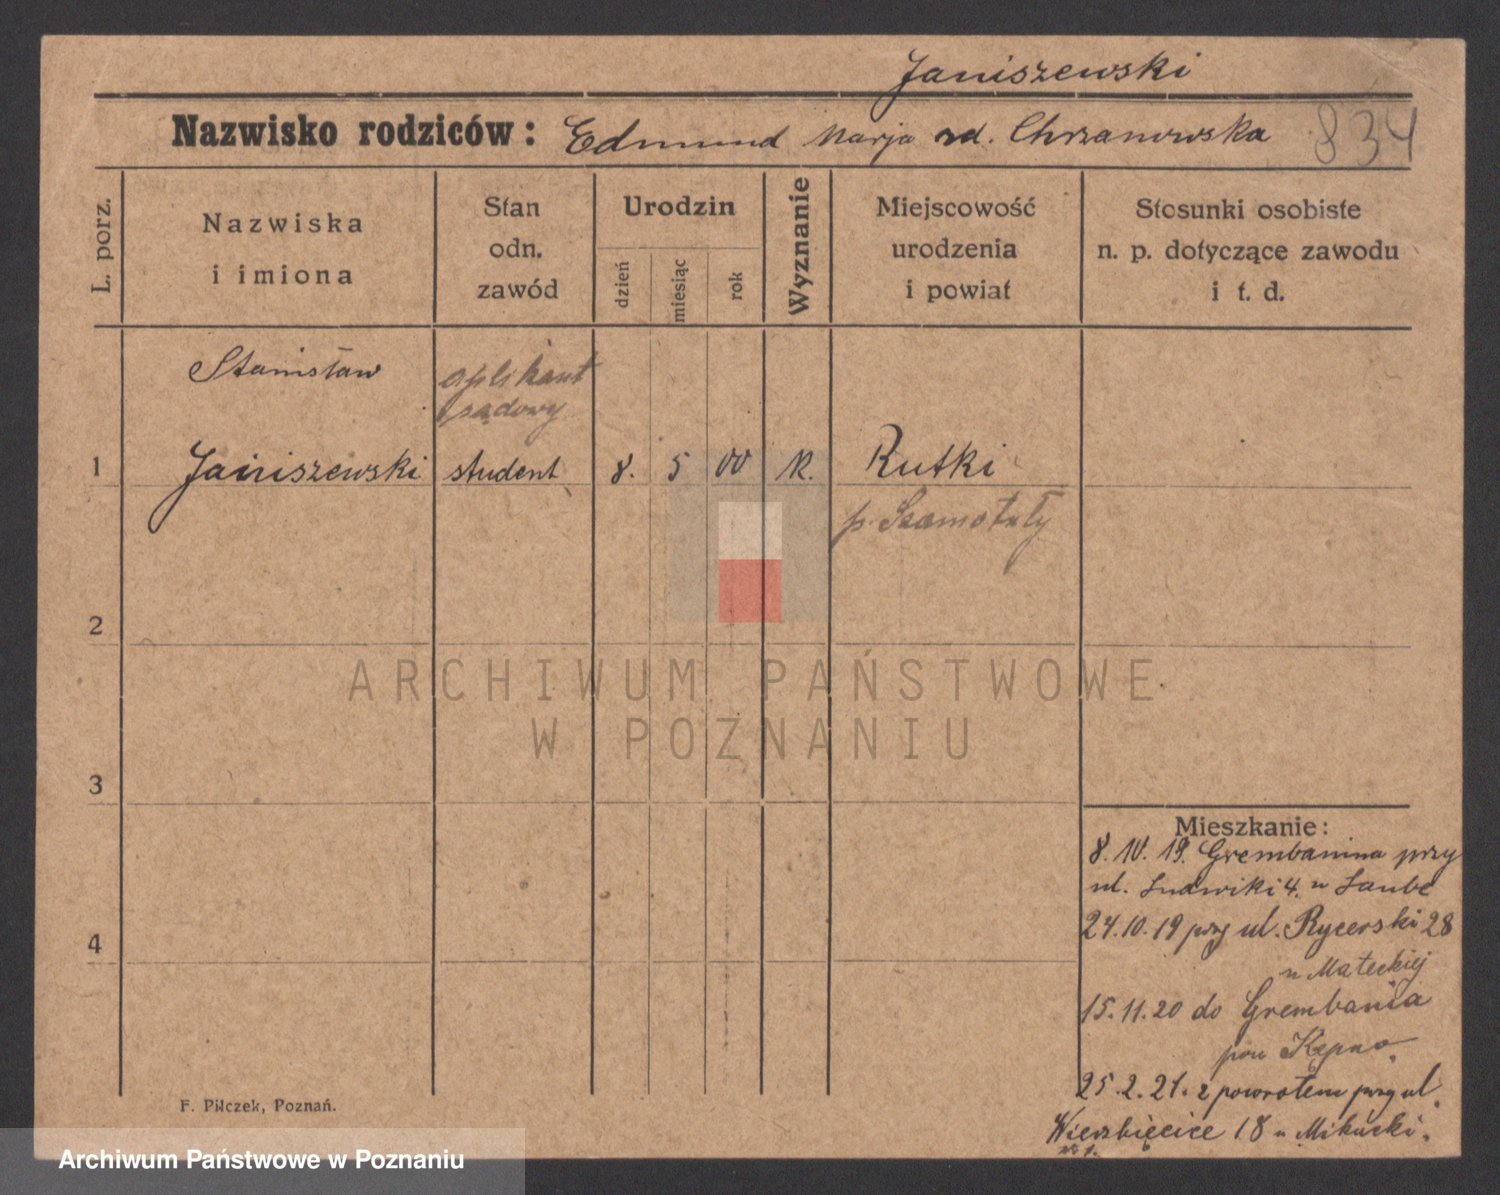 Janiszewski
Nazwisko rodziców: Edmund Marja zd. Chrzanowska 834
L. porz.
Nazwiska
i imiona
Stan
odn.
zawód
Urodzin
dzień
miesiąc
rok
Wyznanie
Miejscowość
urodzenia
i powiat
Stosunki osobiste
n. p. dotyczące zawodu
i t. d.
Stanisław
aplikant
sądowy
1 Janiszewski student 8. 5 00 K. Rutki
p. Szamotuły
2
3
4
Mieszkanie:
8. 10. 19. Grembanina przy
ul. Ludwiki 4. u Laube
24.10.19 przy ul. Rycerski 28
u Mateckiej
15.11.20 do Grembania
pow Kępno.
25.2.21. z powrotem przy ul.
Wierzbięcice 18 u Mikucki.
F. Pilczek, Poznań.
ARCHIWUM PAŃSTWOWE
W POZNANIU
Archiwum Państwowe w Poznaniu